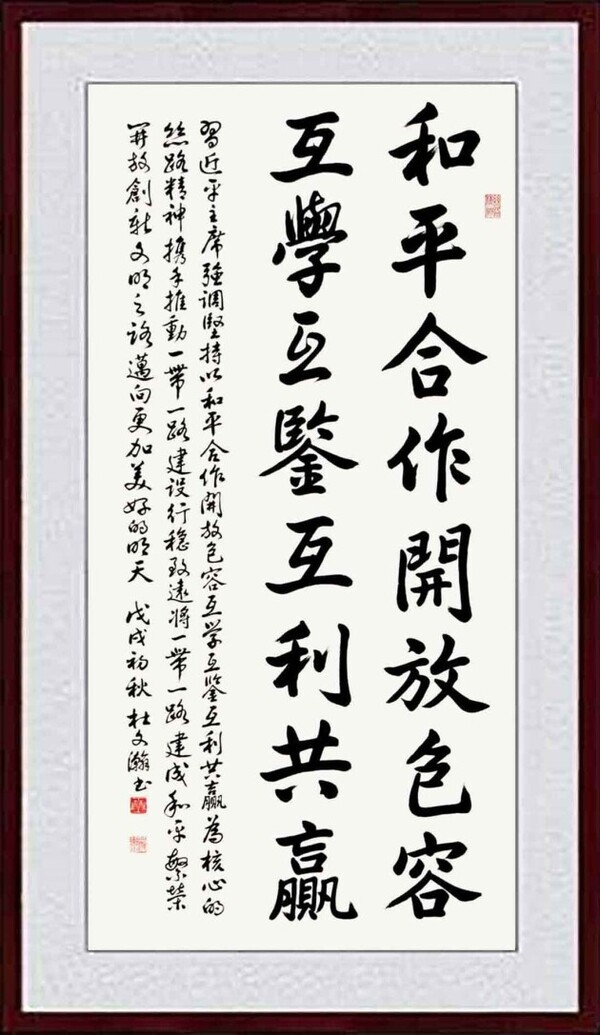 和平合作開放包容
互學互鋻互利共贏
習近平主席強调堅持以和平合作開放包容互学互鉴互利共赢為核心的
丝路精神携手推動一帶一路建设行稳致遠将一帶一路建成和平繁荣
開放創新文明之路邁向更加美好的明天 戊戌初秋 杜文瀚书